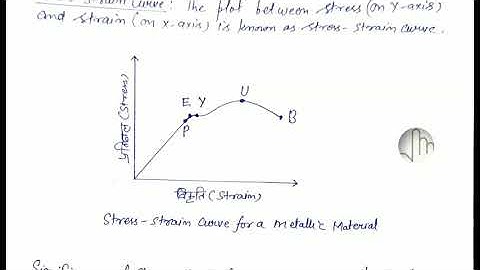 Strain Curve: The plot between stress (on Y-axis)
and strain (on x-axis) is known as stress-strain curve.
प्रतिबल (Stress)
E Y
U
P
B
विकृति (Strain)
Stress-strain curve for a metallic Material